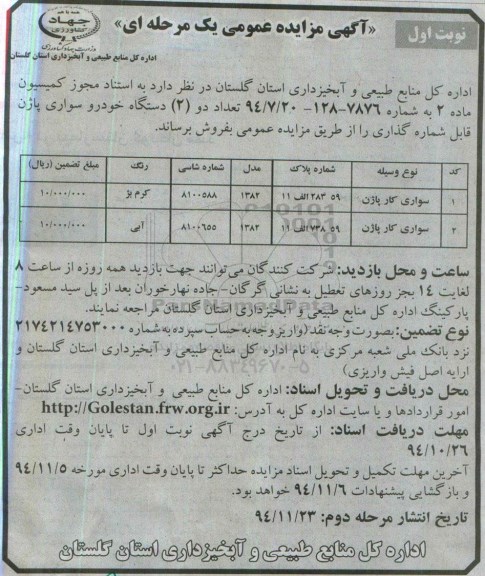 نوبت اول
«آگهی مزایده عمومی یک مرحله ای»
جهاد
کشاورزی
اداره کل منابع طبیعی و آبخیزداری استان گلستان
اداره کل منابع طبیعی و آبخیزداری استان گلستان در نظر دارد به استناد مجوز کمیسیون
ماده ۲ به شماره ۷۸۷۶-۱۲۸- ۹۴/۷/۲۰ تعداد دو (۲) دستگاه خودرو سواری پاژن
قابل شماره گذاری را از طریق مزایده عمومی بفروش برساند.
کد نوع وسیله شماره پلاک مدل شماره شاسی رنگ مبلغ تضمین (ریال)
۱ سواری کار پاژن ۵۹ ۲۸۴ الف ۱۱ ۱۳۸۲ ۸۱۰۰۵۸۸ کرم بژ ۱۰/۰۰۰/۰۰۰
۲ سواری کار پاژن ۵۹ ۷۳۸ الف ۱۱ ۱۳۸۲ ۸۱۰۰۶۵۵ آبی ۱۰/۰۰۰/۰۰۰
ساعت و محل بازدید: شرکت کنندگان می توانند جهت بازدید همه روزه از ساعت ۸
لغایت ۱۴ بجز روزهای تعطیل به نشانی گرگان- جاده نهارخوران بعد از پل سید مسعود-
پارکینگ اداره کل منابع طبیعی و آبخیزداری استان گلستان مراجعه نمایند.
نوع تضمین: بصورت وجه نقد (واریز وجه به حساب سپرده به شماره ۲۱۷۴۲۱۴۷۵۳۰۰۰
نزد بانک ملی شعبه مرکزی به نام اداره کل منابع طبیعی و آبخیزداری استان گلستان و
ارایه اصل فیش واریزی)
۰۲۱-۸۸۳۴۹۶۷۰-۵
محل دریافت و تحویل اسناد: اداره کل منابع طبیعی و آبخیزداری استان گلستان-
امور قراردادها و یا سایت اداره کل به آدرس: http://Golestan.frw.org.ir
مهلت دریافت اسناد: از تاریخ درج آگهی نوبت اول تا پایان وقت اداری
۹۴/۱۰/۲۶
آخرین مهلت تکمیل و تحویل اسناد مزایده حداکثر تا پایان وقت اداری مورخه ۹۴/۱۱/۵
و بازگشایی پیشنهادات ۹۴/۱۱/۶ خواهد بود.
تاریخ انتشار مرحله دوم: ۹۴/۱۱/۲۳
اداره کل منابع طبیعی و آبخیزداری استان گلستان